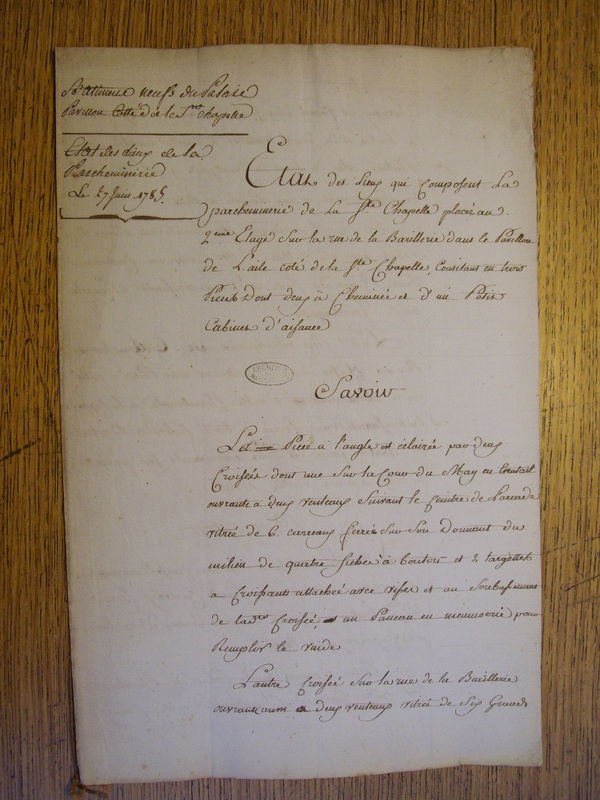 neufs du Palais
Pavillon Cotté de la Ste Chapelle
Etat des Lieux de la
Parcheminerie
Le 27 Juin 1785.
Etat des Lieux qui Composent La
parcheminerie de La Ste Chapelle placée au
2eme Etage Sur la rue de la Barillerie dans le Pavillon
de L'aile coté de la Ste Chapelle, Consistant en trois
Pieces Dont deux à Cheminée et d'un Petit
Cabinet d'aisance
Savoir
La 1ere Piece a l'angle est éclairée par deux
Croisées dont une Sur la Cour du May en
ouvrante a deux venteaux Suivant le Ceintre de
vitrée de 6. carreaux ferrée Sur Son Dormant du
milieu de quatre fiches à boutons et 2 targettes
a Croissants attachée avec visses et au Soubassement
de lade Croisée, un Panneau en menuiserie pour
Remplir le vuide
L'autre Croisée Sur la rue de la Barillerie
ouvrante aussi a deux venteaux vitrée de Six Grands